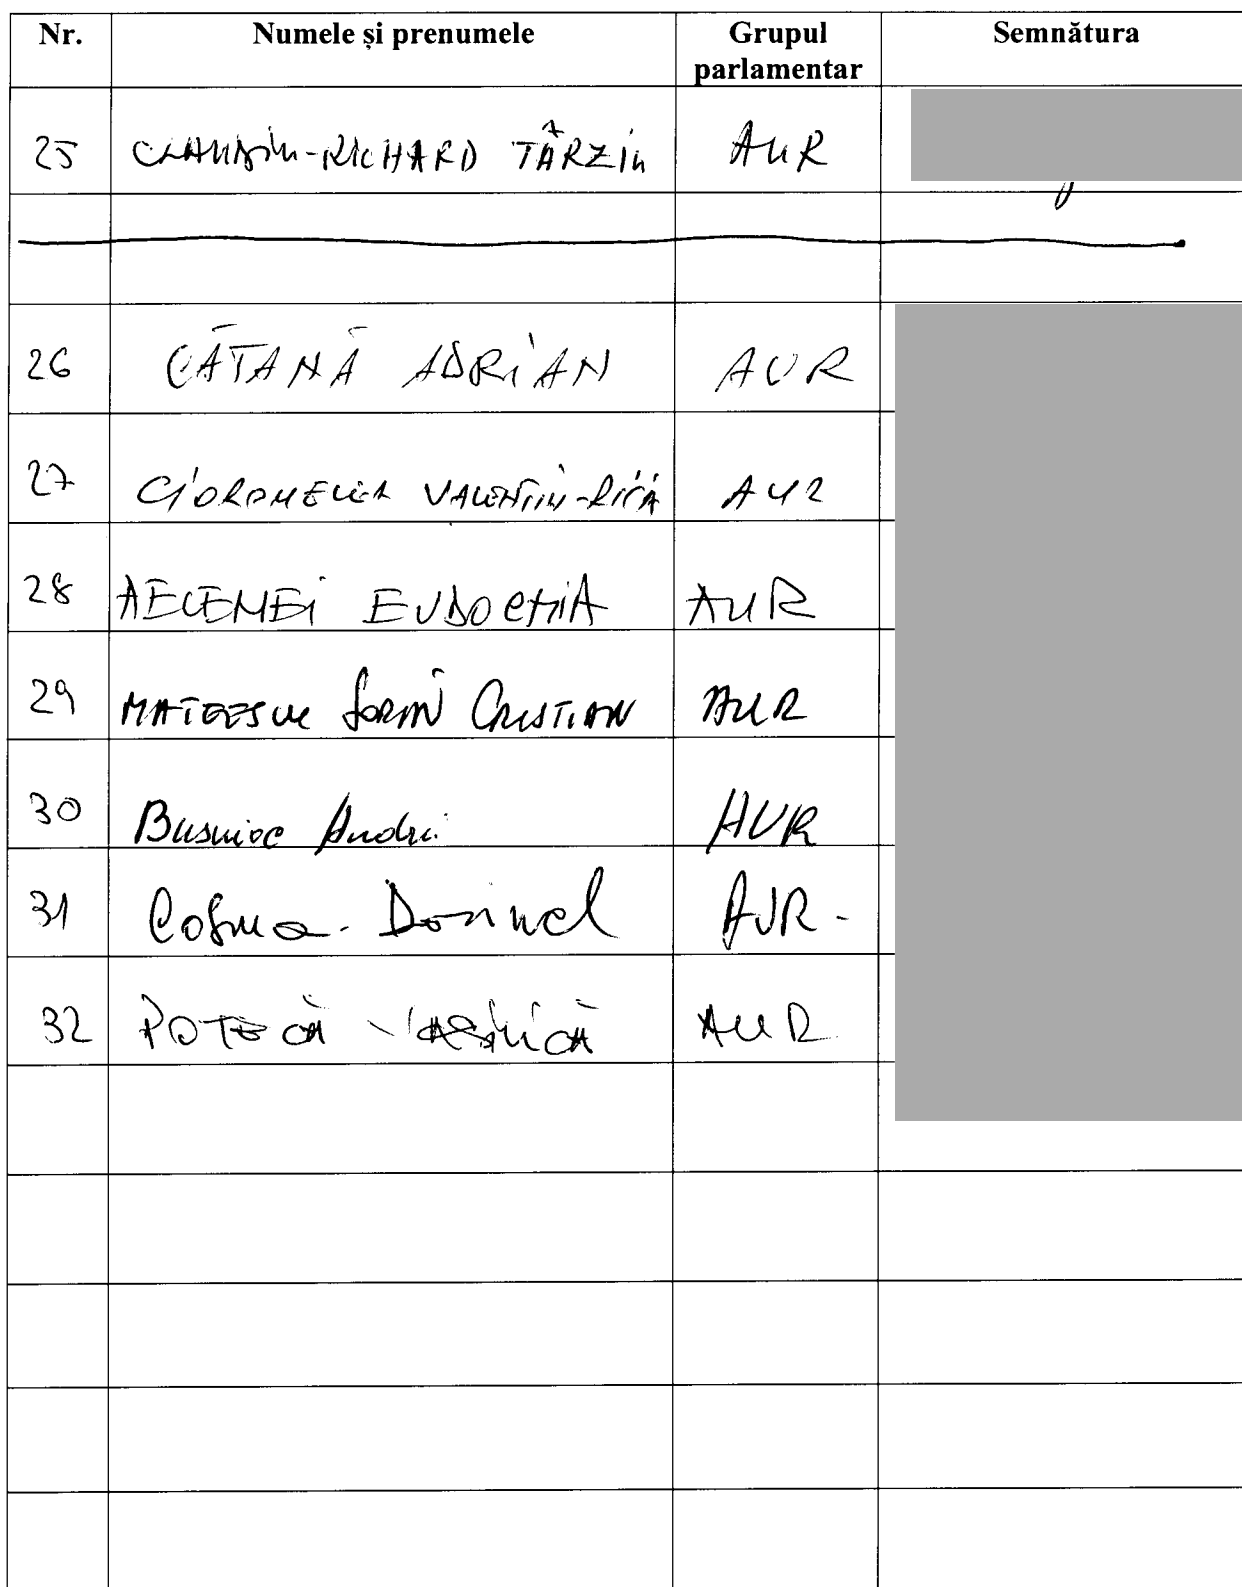 Nr. Numele și prenumele Grupul parlamentar Semnătura
25 CLAUDIU-RICHARD TÂRZIU AUR
26 CĂTANĂ ADRIAN AUR
27 CIOROMELEA VALENTIN-RICĂ AUR
28 AELENEI EVDOCHIA AUR
29 MATEESCU SORIN CRISTIAN AUR
30 Busuioc Andrei AUR
31 Cosma Dorinel AUR -
32 POTECĂ VASILICĂ AUR